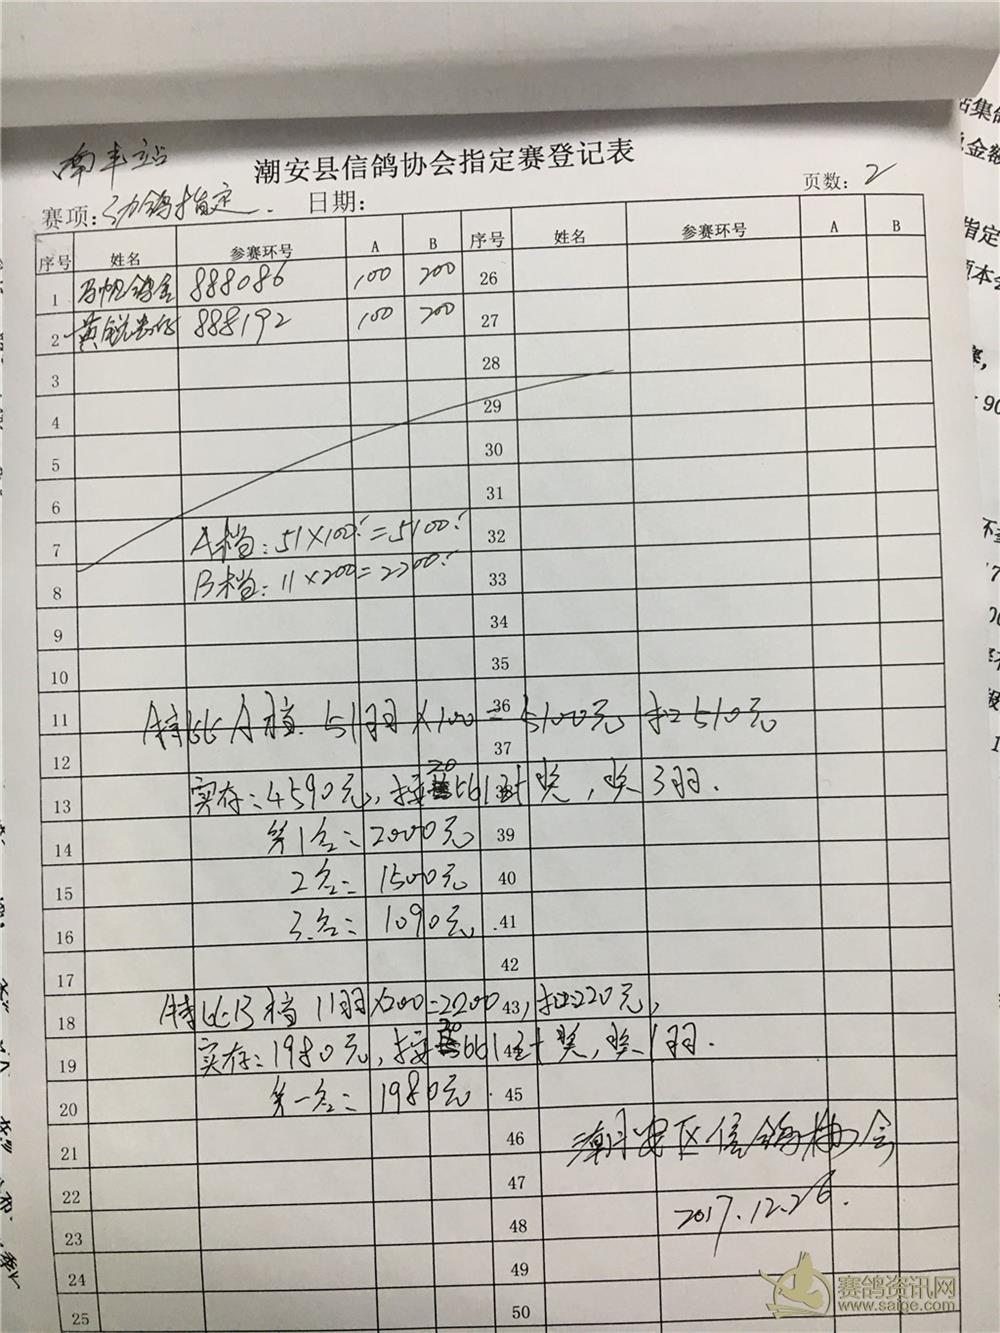 南丰站
潮安县信鸽协会指定赛登记表
赛项: 幼鸽指定. 日期: 页数: 2
序号 姓名 参赛环号 A B 序号 姓名 参赛环号 A B
1 888086 100 200 26
2 888192 100 200 27
3 28
4 29
5 30
6 31
7 A档: 51×100=5100 32
8 B档: 11×200=2200 33
9 34
10 35
11 特比A档 51羽×100=5100元 扣510元 36
12 37
13 实存: 4590元, 按20 计奖, 奖3羽.
14 第1名: 2000元 39
15 2名: 1500元 40
16 3名: 1090元 41
17 42
18 特比B档 11羽×200=2200, 扣220元, 43
19 实存: 1980元, 按20 计奖, 奖1羽. 44
20 第一名: 1980元 45
21 46
潮安区信鸽协会
22 47
23 48
2017.12.26.
24 49
25 50
集鸽
金额
指定
本会
赛,
90
赛鸽资讯网
www.saige.com